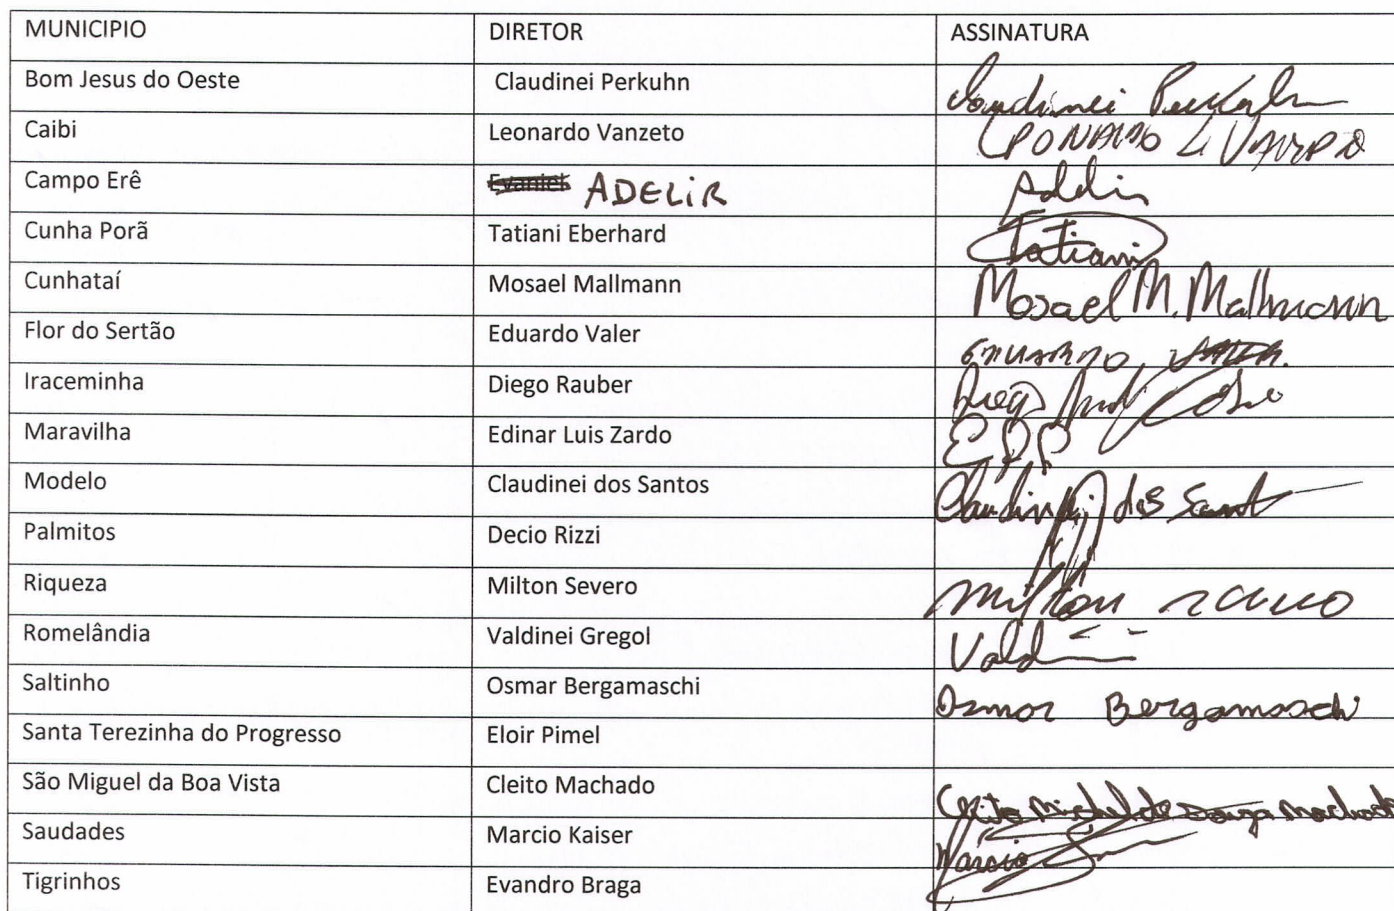 MUNICIPIO DIRETOR ASSINATURA
Bom Jesus do Oeste Claudinei Perkuhn Claudinei Perkuhn
Caibi Leonardo Vanzeto
Campo Erê ADELIR Adelir
Cunha Porã Tatiani Eberhard Tatiani
Cunhataí Mosael Mallmann Mosael M. Mallmann
Flor do Sertão Eduardo Valer EDUARDO
Iraceminha Diego Rauber Diego
Maravilha Edinar Luis Zardo
Modelo Claudinei dos Santos Claudinei dos Sant
Palmitos Decio Rizzi
Riqueza Milton Severo Milton
Romelândia Valdinei Gregol Vald
Saltinho Osmar Bergamaschi Osmar Bergamaschi
Santa Terezinha do Progresso Eloir Pimel
São Miguel da Boa Vista Cleito Machado Cleito Michel de Souza Machado
Saudades Marcio Kaiser Marcio
Tigrinhos Evandro Braga